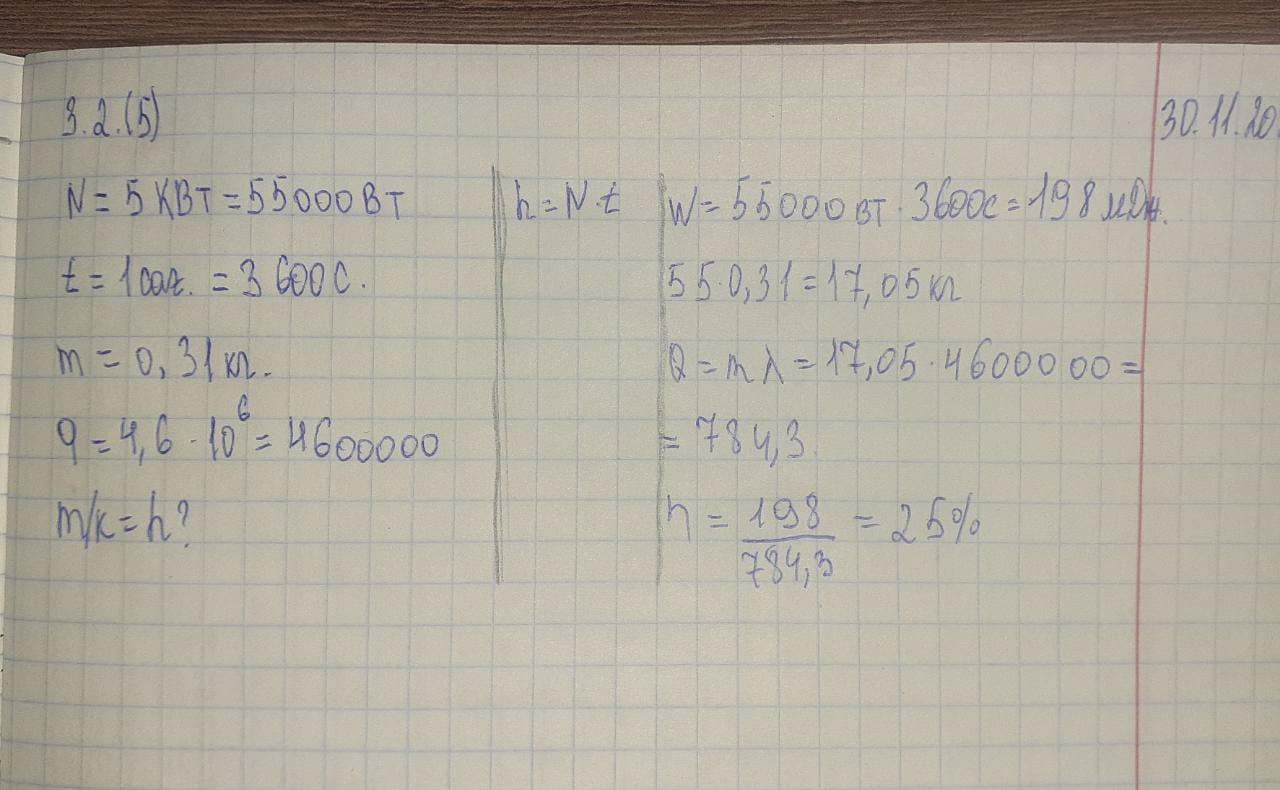 3.2.(5)
30.11.20
N = 5 КВТ = 55000 ВТ
t = 1 сат. = 3 600 С.
m = 0,31 кг.
q = 4,6 · 10⁶ = 4600000
m/к = h?
h = N·t
W = 55000 ВТ · 3600с = 198 мДж.
55·0,31 = 17,05 кг
Q = m λ = 17,05 · 4600000 =
= 784,3
η = 198/784,3 = 25%